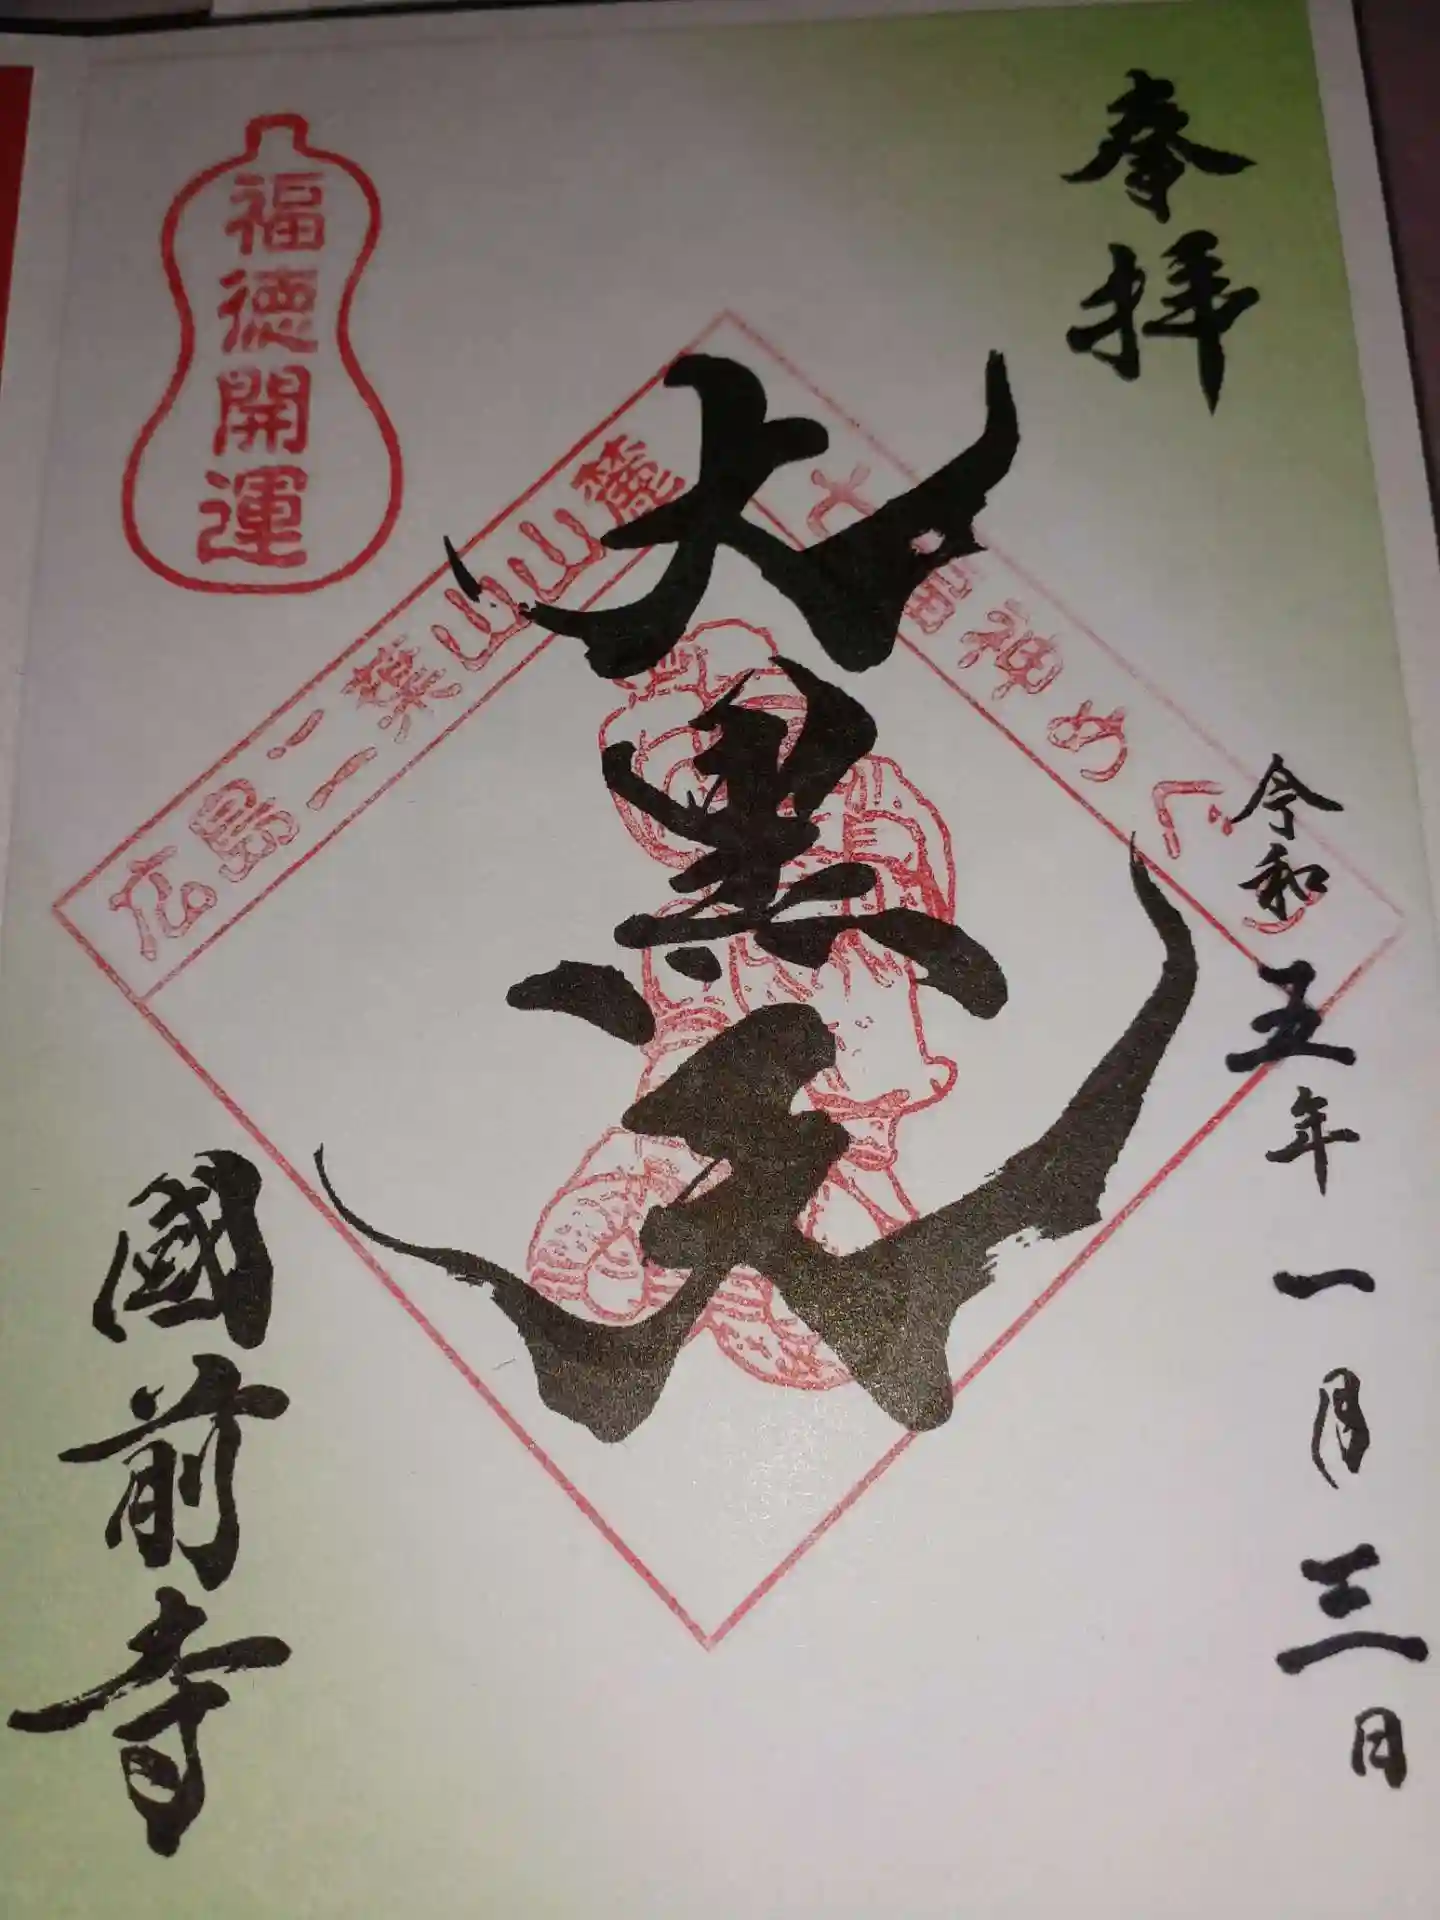 奉拝
令和五年一月三日
大黒天
広島二葉山山麓
七福神めぐり
福徳開運
國前寺